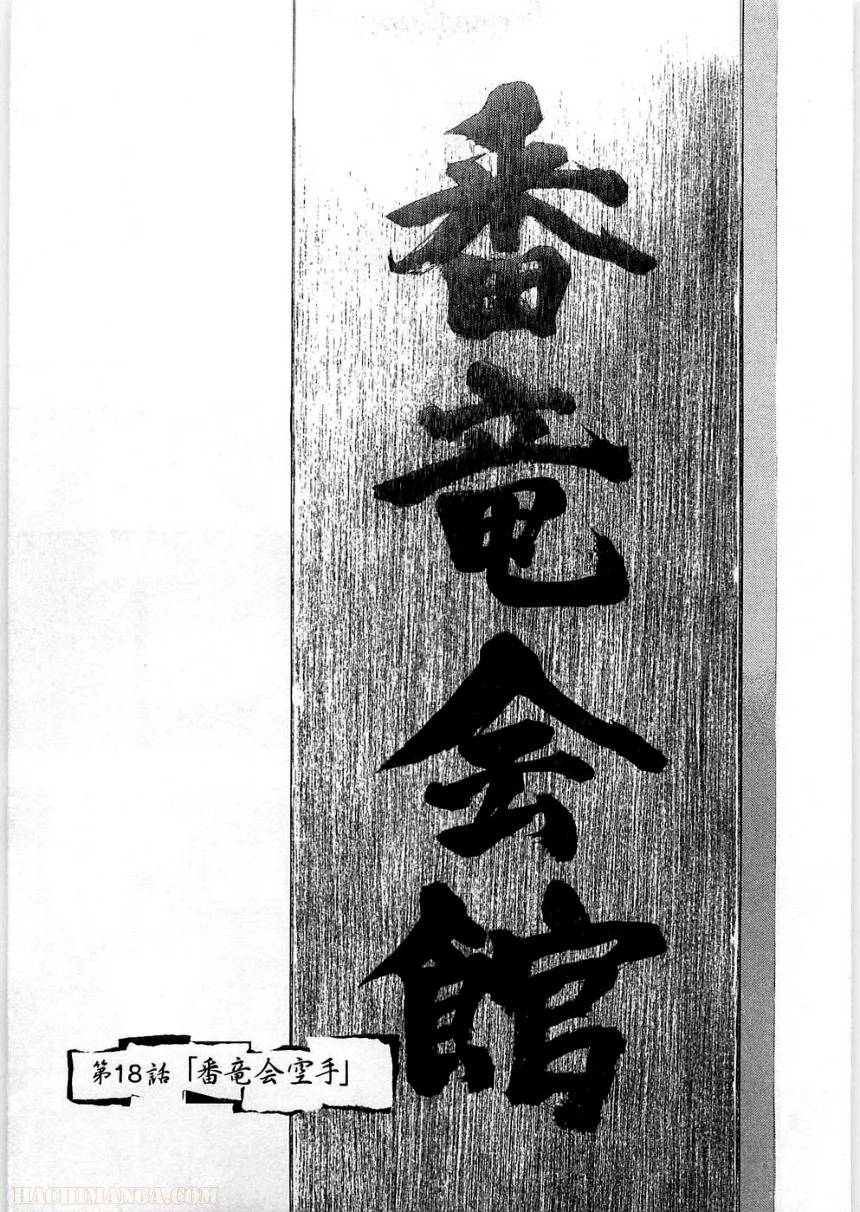 番竜会館
第18話「番竜会空手」
HACHIMANGA.COM